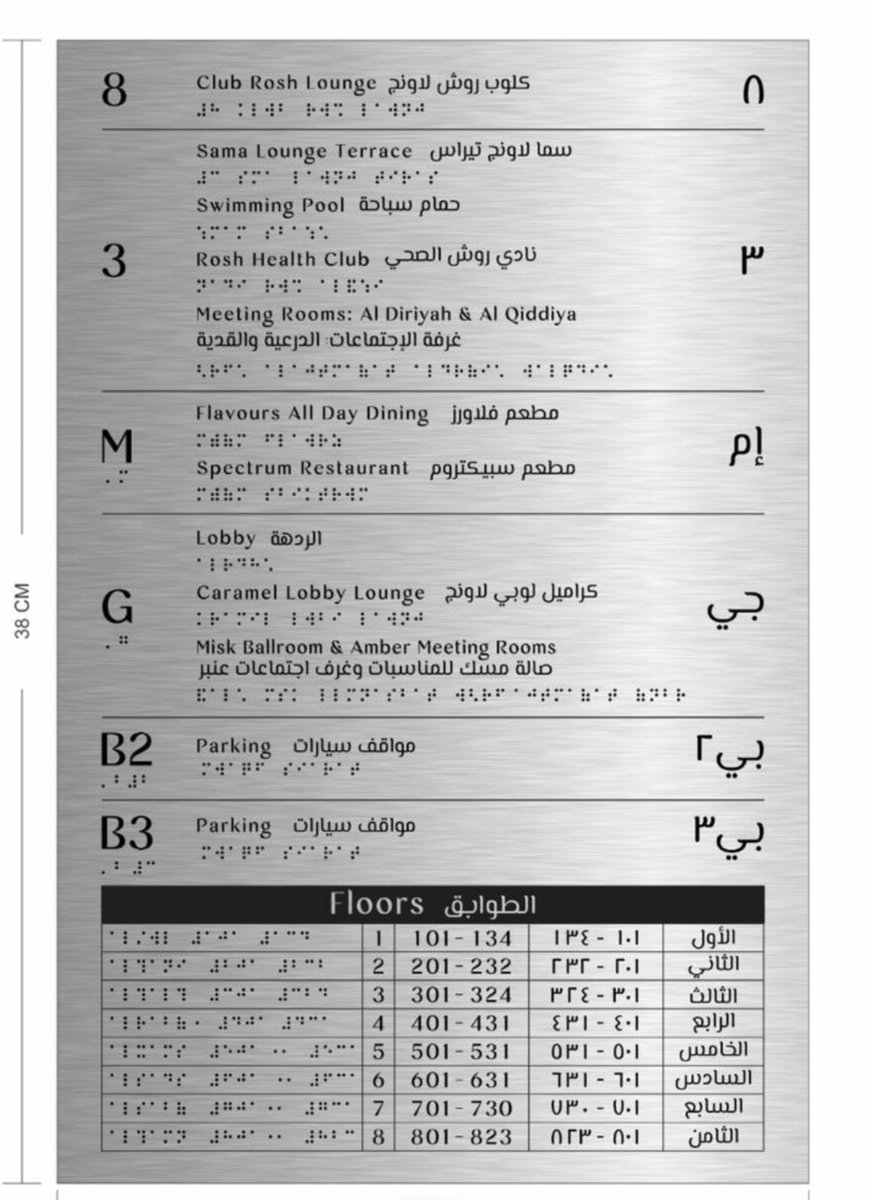 8 Club Rosh Lounge كلوب روش لاونج ٨
Sama Lounge Terrace سما لاونج تيراس
Swimming Pool حمام سباحة
3 Rosh Health Club نادي روش الصحي ٣
Meeting Rooms: Al Diriyah & Al Qiddiya
غرفة الإجتماعات: الدرعية والقدية
Flavours All Day Dining مطعم فلاورز
M إم
Spectrum Restaurant مطعم سبيكتروم
Lobby الردهة
G Caramel Lobby Lounge كراميل لوبي لاونج جي
Misk Ballroom & Amber Meeting Rooms
صالة مسك للمناسبات وغرف اجتماعات عنبر
B2 Parking مواقف سيارات بي٢
B3 Parking مواقف سيارات بي٣
Floors الطوابق
1 101 - 134 ١٠١ - ١٣٤ الأول
2 201 - 232 ٢٠١ - ٢٣٢ الثاني
3 301 - 324 ٣٠١ - ٣٢٤ الثالث
4 401 - 431 ٤٠١ - ٤٣١ الرابع
5 501 - 531 ٥٠١ - ٥٣١ الخامس
6 601 - 631 ٦٠١ - ٦٣١ السادس
7 701 - 730 ٧٠١ - ٧٣٠ السابع
8 801 - 823 ٨٠١ - ٨٢٣ الثامن
38 CM